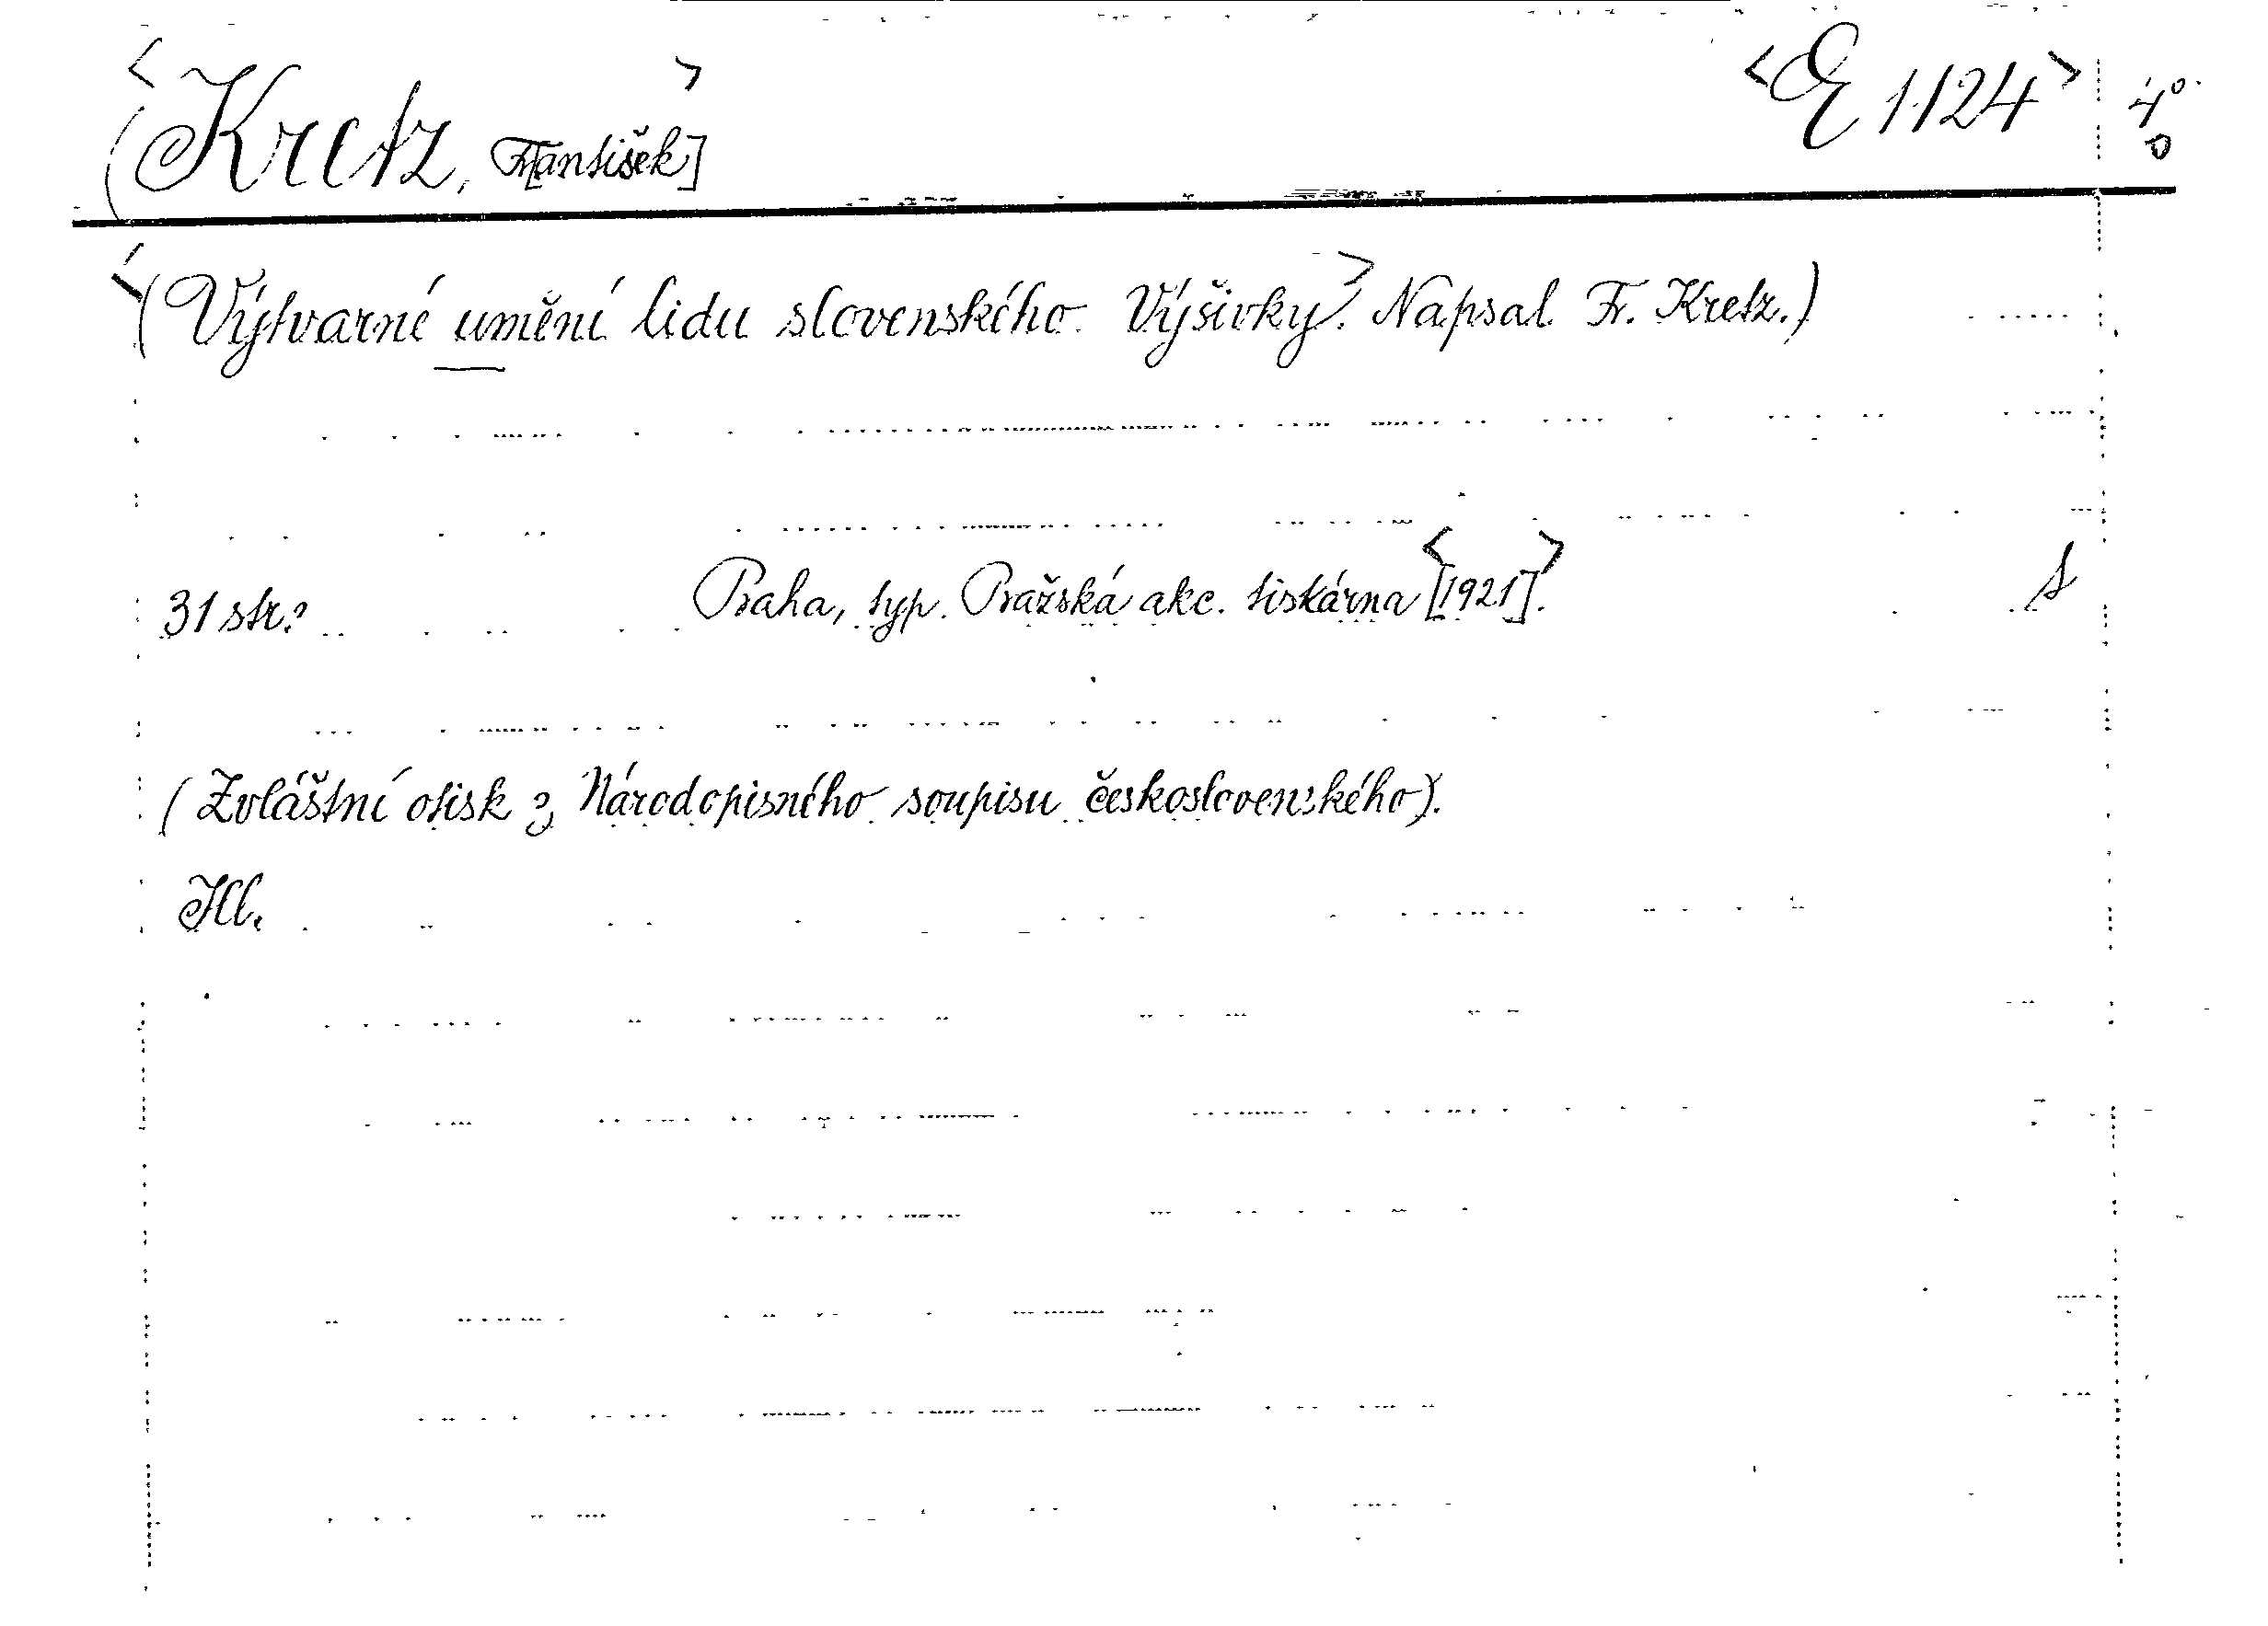 <Kretz, F[rantišek]> <E 1124> 4°
(<Výtvarné umění lidu slovenského. Výšivky>. Napsal Fr. Kretz.)
31 str. Praha, typ. Pražská akc. tiskárna <[1921]>.
(Zvláštní otisk z Národopisného soupisu československého).
Hl.